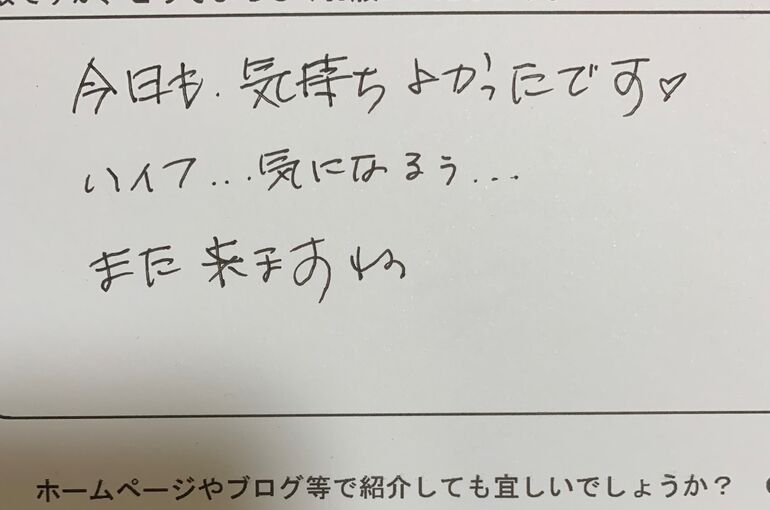 今日も、気持ちよかったです♡
ハイフ...気になるぅ...
また来ますね
ホームページやブログ等で紹介しても宜しいでしょうか？